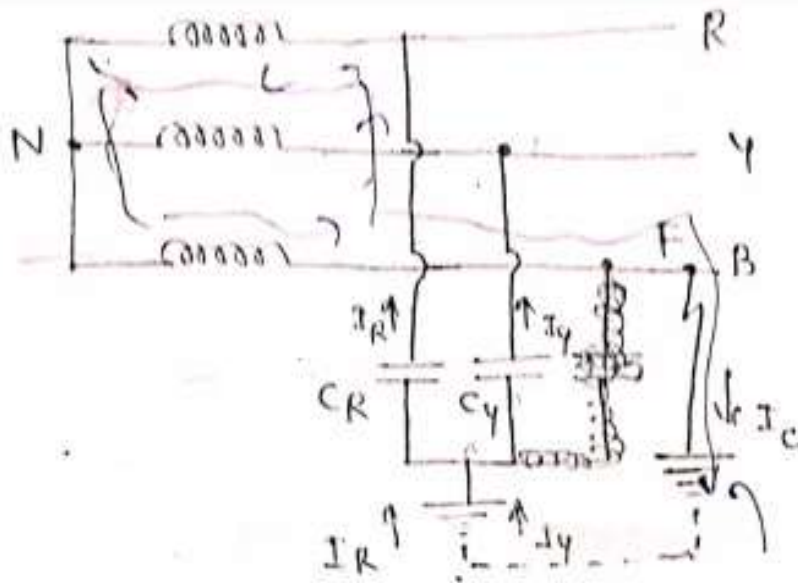 R
N Y
F B
I_R I_Y
C_R C_Y I_C
I_R I_Y